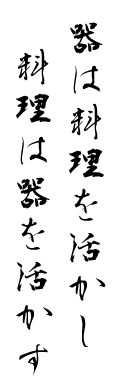 器は料理を活かし
料理は器を活かす